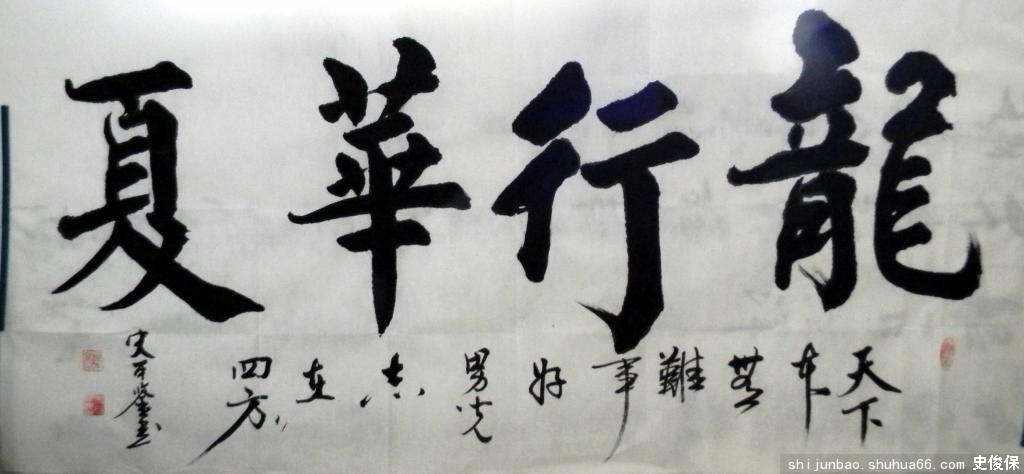 龍行華夏
天下本無難事好男兒志在四方
shijunbao.shuhua66.com 史俊保